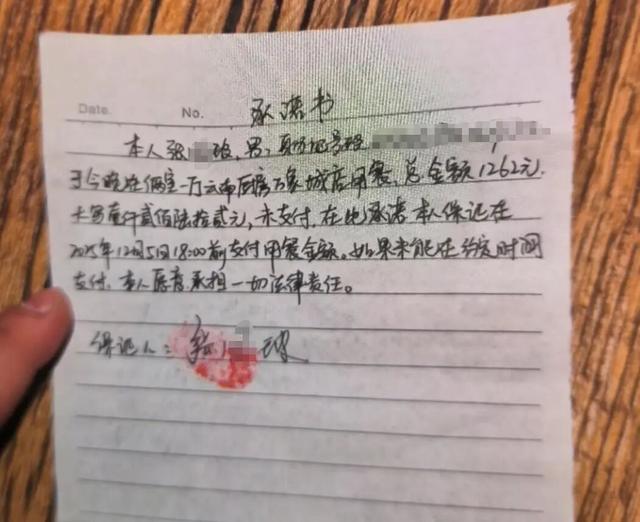 Date.
No.
承诺书
本人张 波,男,身份证号码
于今晚在 一万云南 万象城店用餐,总金额1262元.
大写壹仟贰佰陆拾贰元,未支付.在此承诺本人保证在
2025年12月5日18:00前支付用餐金额。如果未能在约定时间
支付.本人愿意承担一切法律责任。
保证人:张 波